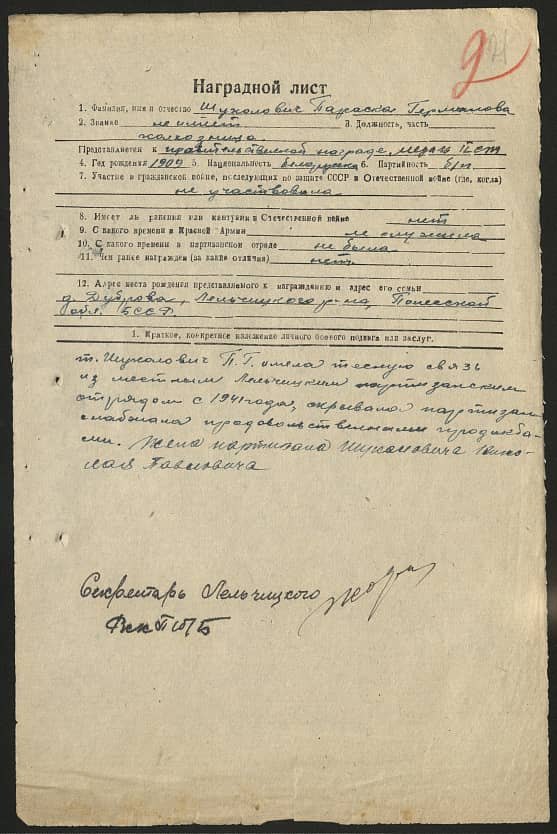 9
Наградной лист
1. Фамилия, имя и отчество Шуколович Параска Германова
2. Звание не имеет 3. Должность, часть
колхозница
Представляется к правительственной награде, медали
4. Год рождения 1909 5. Национальность белоруска 6. Партийность б/п
7. Участие в гражданской войне, последующих по защите СССР и Отечественной войне (где, когда)
не участвовала
8. Имеет ли ранения или контузии в Отечественной войне нет
9. С какого времени в Красной Армии не служила
10. С какого времени в партизанском отряде не была
11. Чем ранее награжден (за какие отличия) нет
12. Адрес места рождения представляемого к награждению и адрес его семьи
д. Дуброва, Лельчицкого р-на, Полесской
обл. БССР.
1. Краткое, конкретное изложение личного боевого подвига или заслуг.
т. Шуколович П.Г. имела тесную связь
из местным Лельчицким партизанским
отрядом с 1941 года, скрывала партизан
снабжала продовольственными продукта-
ми. Жена партизана Шукаловича Нико-
лая Павловича
Секретарь Лельчицкого
РК КП/б/Б